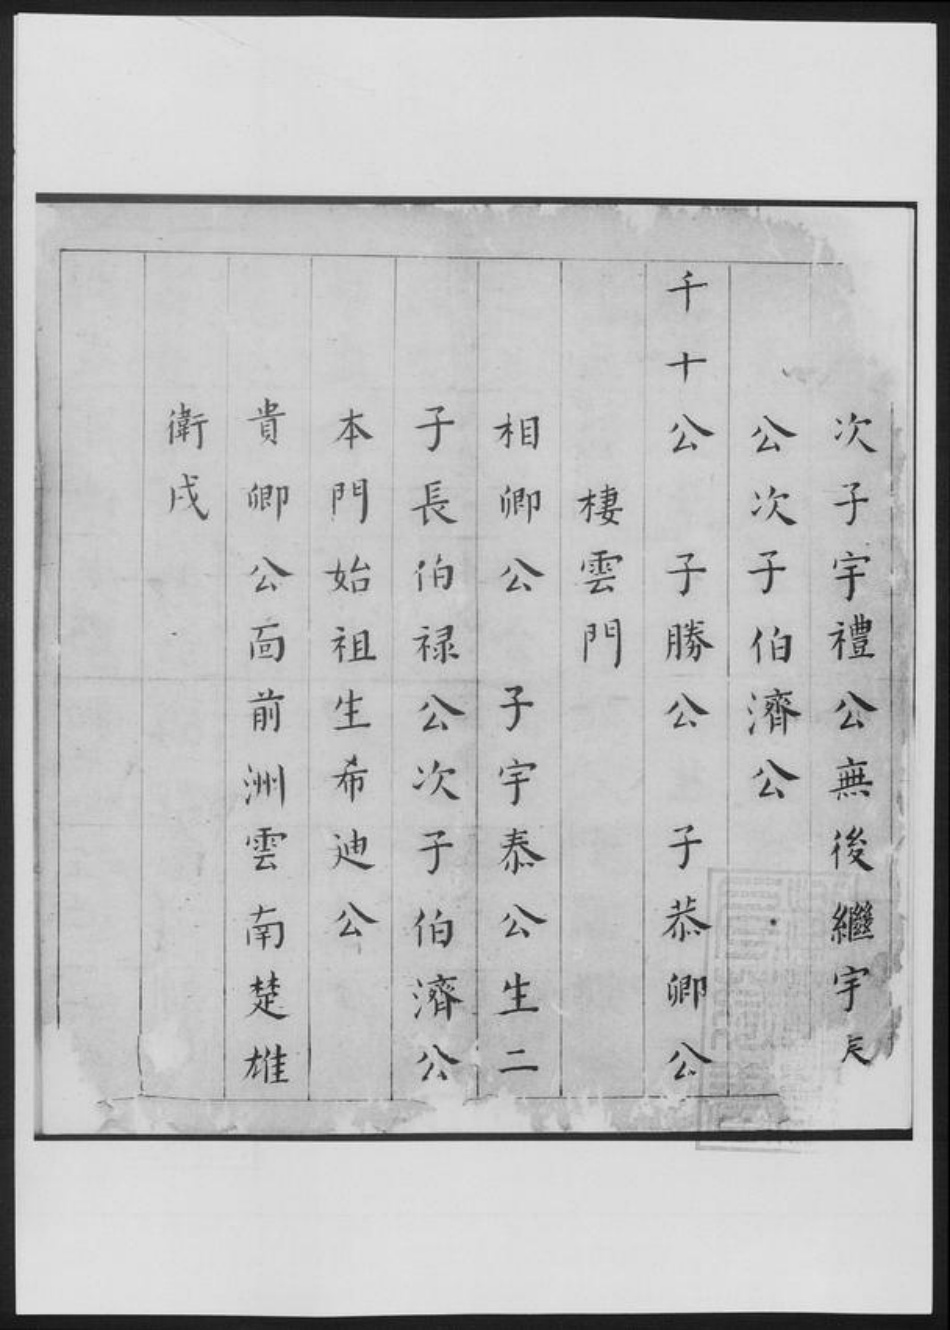 次子宇禮公無後繼宇
公次子伯濟公
千十公 子勝公 子恭卿公
棲雲門
相卿公 子宇泰公生二
子長伯禄公次子伯濟公
本門始祖生希迪公
貴卿公面前洲雲南楚雄
衛戍